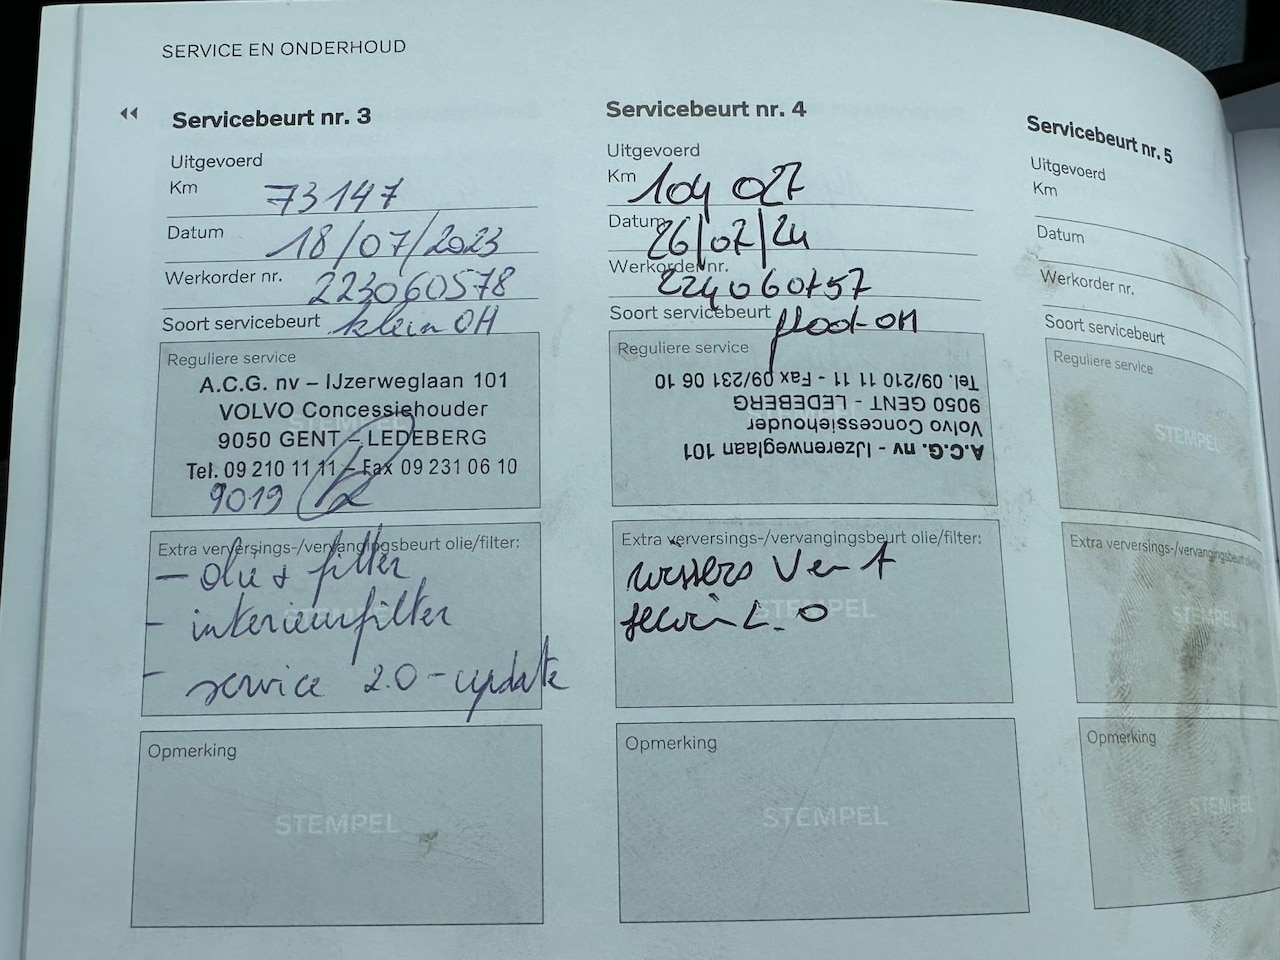 SERVICE EN ONDERHOUD
Servicebeurt nr. 3
Uitgevoerd
Km 73147
Datum 18/07/2023
Werkorder nr. 223060578
Soort servicebeurt klein OH
Reguliere service
STEMPEL
A.C.G. nv – IJzerweglaan 101
VOLVO Concessiehouder
9050 GENT – LEDEBERG
Tel. 09 210 11 11 – Fax 09 231 06 10
9019
Extra verversings-/vervangingsbeurt olie/filter:
– olie + filter
– interieurfilter
- service 2.0 - update
Opmerking
STEMPEL
Servicebeurt nr. 4
Uitgevoerd
Km 104 027
Datum 26/07/24
Werkorder nr. 224060757
Soort servicebeurt groot-OH
Reguliere service
A.C.G. nv - IJzerenweglaan 101
Volvo Concessiehouder
9050 GENT - LEDEBERG
Tel. 09/210 11 11 - Fax 09/231 06 10
Extra verversings-/vervangingsbeurt olie/filter:
wissers
STEMPEL
Opmerking
STEMPEL
Servicebeurt nr. 5
Uitgevoerd
Km
Datum
Werkorder nr.
Soort servicebeurt
Reguliere service
STEMPEL
Extra verversings-/vervangingsbeurt
STEMPEL
Opmerking
STEMPEL